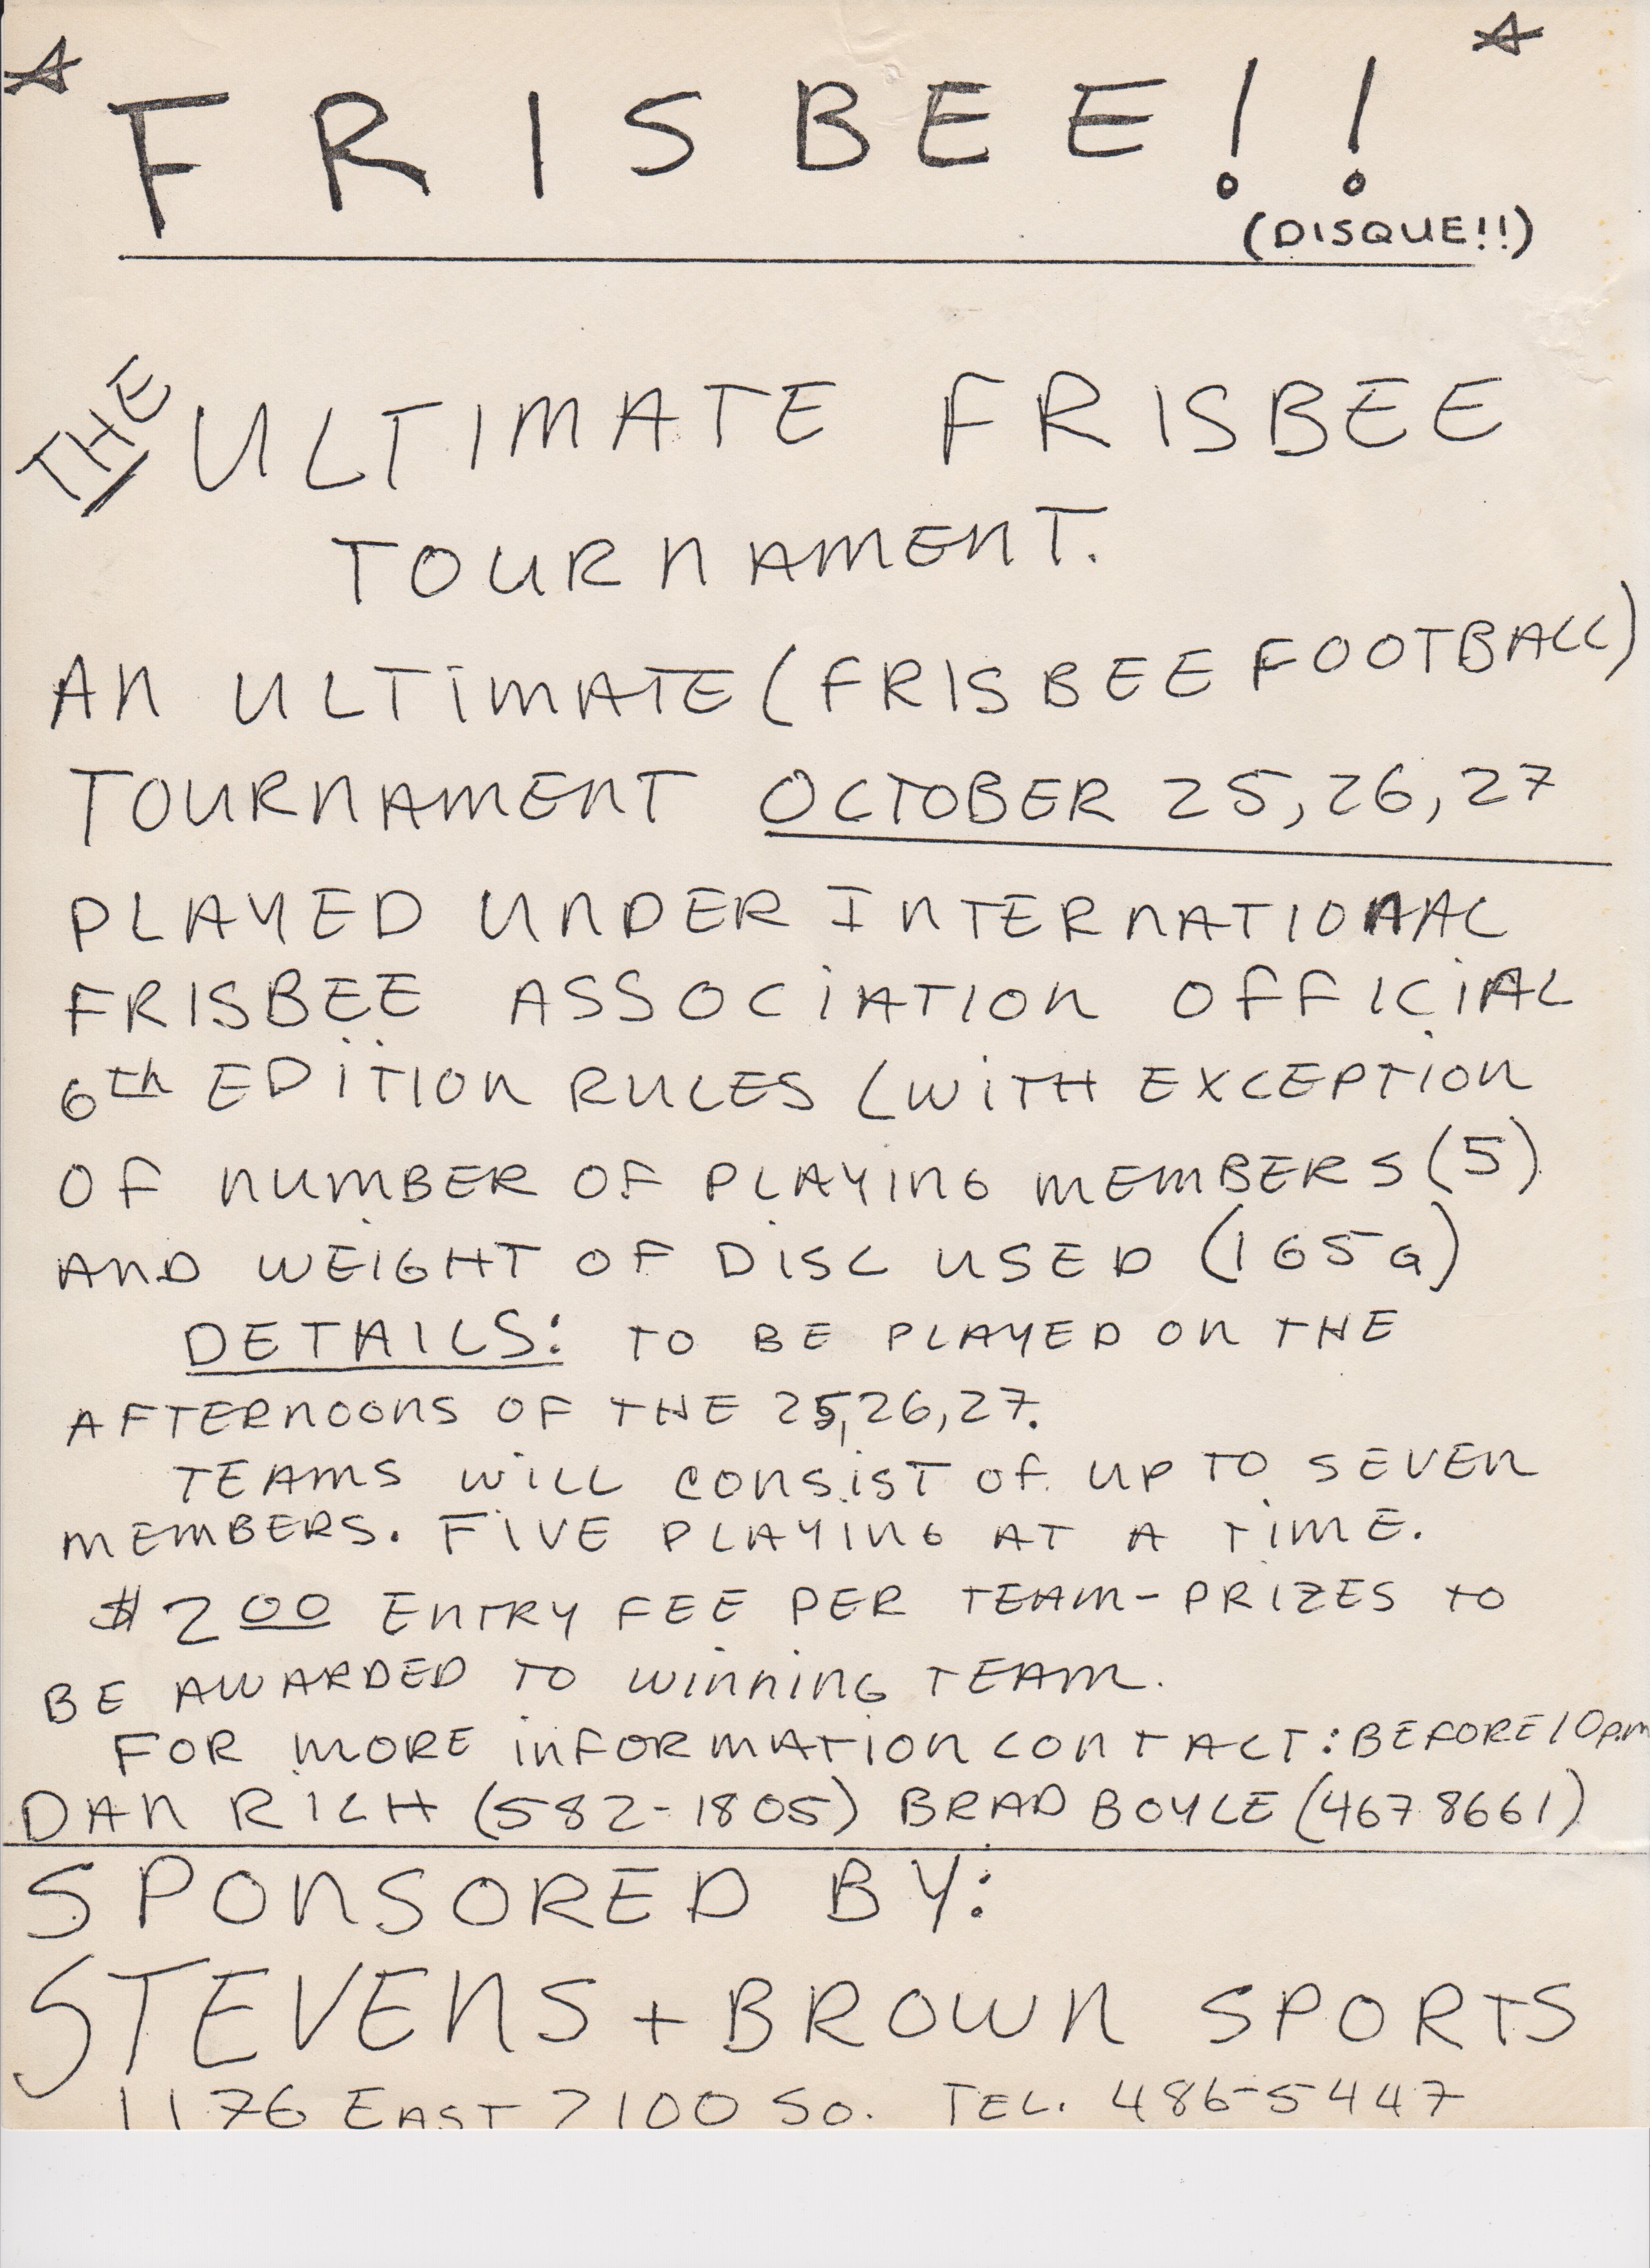 FRISBEE!!
(DISQUE!!)
THE ULTIMATE FRISBEE
TOURNAMENT.
AN ULTIMATE (FRISBEE FOOTBALL)
TOURNAMENT OCTOBER 25, 26, 27
PLAYED UNDER INTERNATIONAL
FRISBEE ASSOCIATION OFFICIAL
6th EDITION RULES (WITH EXCEPTION
OF NUMBER OF PLAYING MEMBERS (5)
AND WEIGHT OF DISC USED (165G)
DETAILS: TO BE PLAYED ON THE
AFTERNOONS OF THE 25, 26, 27.
TEAMS WILL CONSIST OF UP TO SEVEN
MEMBERS. FIVE PLAYING AT A TIME.
$2.00 ENTRY FEE PER TEAM - PRIZES TO
BE AWARDED TO WINNING TEAM.
FOR MORE INFORMATION CONTACT: BEFORE 10 p.m
DAN RICH (582-1805) BRAD BOYLE (467 8661)
SPONSORED BY:
STEVENS + BROWN SPORTS
1176 EAST 2100 SO. TEL. 486-5447